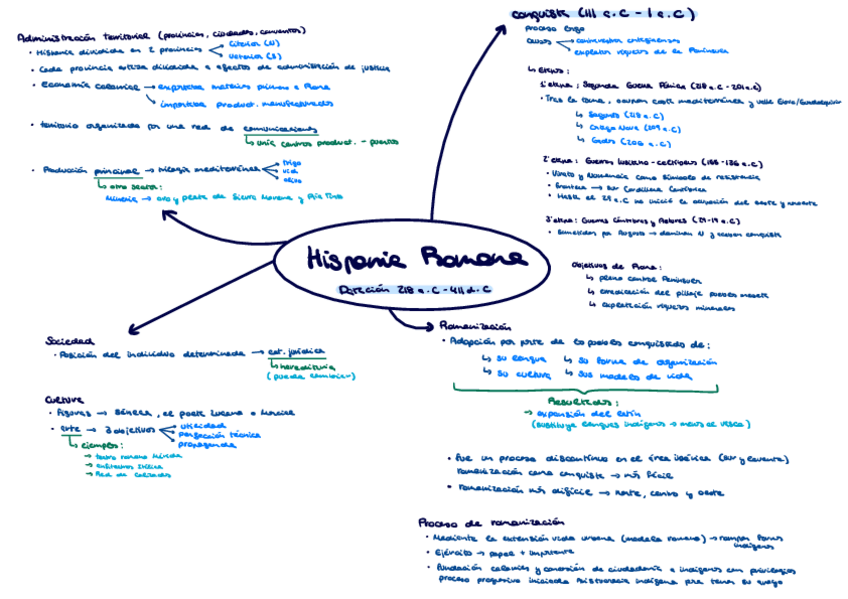 Administración territorial (provincias, ciudades, conventos)
• Hispania dividida en 2 provincias
Citerior (N)
Ulterior (S)
• Cada provincia estaba dividida a efectos de administración de justicia
• Economía colonial → exportaba materias primas a Roma
importaba product. manufacturados
• territorio organizado por una red de comunicaciones
↳ unía centros product. - puertos
• Producción principal → trilogía mediterránea
trigo
vid
olivo
↳ otro sector:
Minería → oro y plata de Sierra Morena y Río Tinto
conquista (III a.C - I a.C)
Proceso largo
causas
contraofensiva cartaginenses
explotar riquezas de la Península
↳ etapas:
1ª etapa: Segunda Guerra Púnica (218 a.C - 201 a.C)
• Tras la toma, ocupan costa mediterránea y valle Ebro/Guadalquivir
↳ Sagunto (218 a.C)
↳ Cartago Nova (209 a.C)
↳ Gades (206 a.C)
2ª etapa: Guerras lusitano-celtíberas (155-136 a.C)
• Viriato y Numancia como símbolo de resistencia
• frontera → sur Cordillera Cantábrica
• Hasta el 29 a.C no inició la ocupación del oeste y noroeste
3ª etapa: Guerras Cántabras y Astures (29-19 a.C)
• Sometidos por Augusto → dominan N y acaban conquista
Objetivos de Roma:
↳ pleno control Península
↳ erradicación del pillaje pueblos meseta
↳ explotación riquezas minerales
Hispania Romana
Duración 218 a.C - 411 d.C
Sociedad
• Posición del individuo determinada → est. jurídico
↳ hereditaria
(pueda cambiar)
Cultura
• Figuras → Séneca, el poeta Lucano o Marcial
• arte → 3 objetivos
utilidad
perfección técnica
propaganda
↳ ejemplos:
→ teatro romano Mérida
→ anfiteatro Itálica
→ Red de calzadas
Romanización
• Adopción por parte de los pueblos conquistados de:
↳ su lengua ↳ su forma de organización
↳ su cultura ↳ sus modelos de vida
Resultados:
→ expansión del latín
(sustituye lenguas indígenas → menos el vasco)
• fue un proceso discontinuo en el área ibérica (sur y levante)
romanización como conquista → más fácil
• romanización más difícil → norte, centro y oeste
Proceso de romanización
• Mediante la extensión vida urbana (modelo romano) → rompen formas indígenas
• Ejército → papel + importante
• Fundación colonias y concesión de ciudadanía a indígenas con privilegios
proceso progresivo iniciada resistencia indígena para tener su